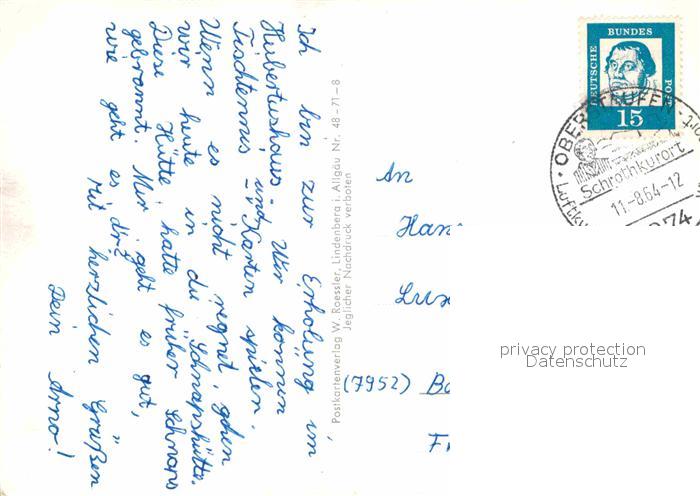 Ich bin zur Erholung im
Hubertushaus. Wir können
Tischtennis und Karten spielen.
Wenn es nicht regnet, gehen
wir heute in die Schnapshütte.
Diese Hütte hatte früher Schnaps
gebrannt. Mir geht es gut,
wie geht es dir?
Mit herzlichen Grüßen
Dein Arno!
Postkartenverlag W. Roessler, Lindenberg i. Allgäu Nr. 48-71-8
Jeglicher Nachdruck verboten
DEUTSCHE BUNDES POST
15
OBERSTAUFEN
Schrothkurort
11.-8.64-12
An
(7952)
privacy protection
Datenschutz